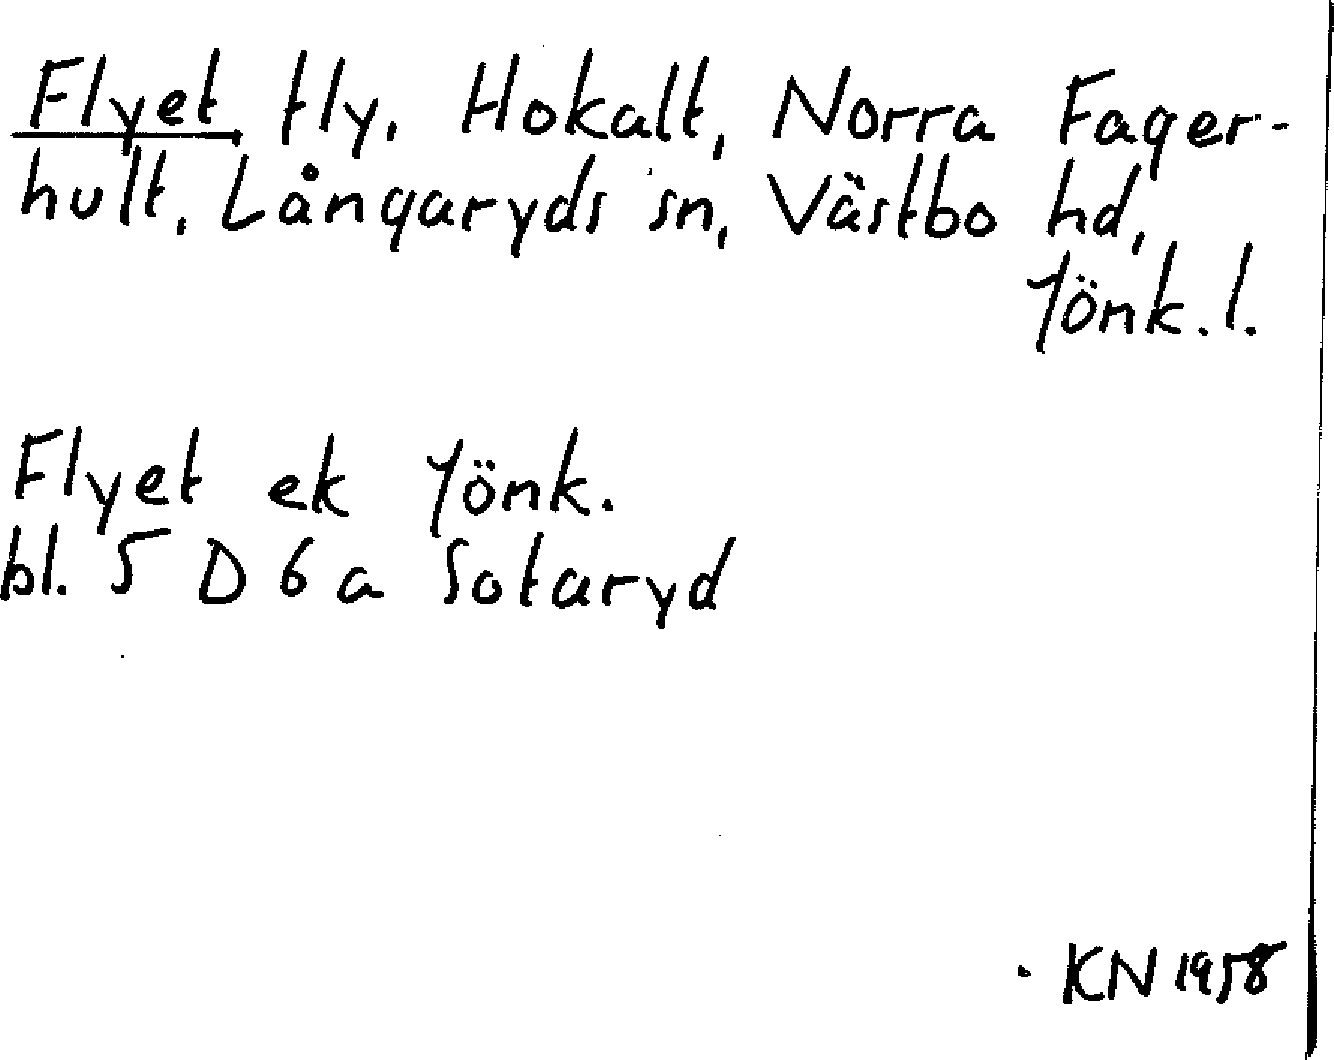 Flyet fly. Hokalt, Norra Fager-
hult, Långaryds sn, Västbo hd,
Jönk. l.
Flyet ek Jönk.
bl. 5 D 6 a Sotaryd
KN 1958